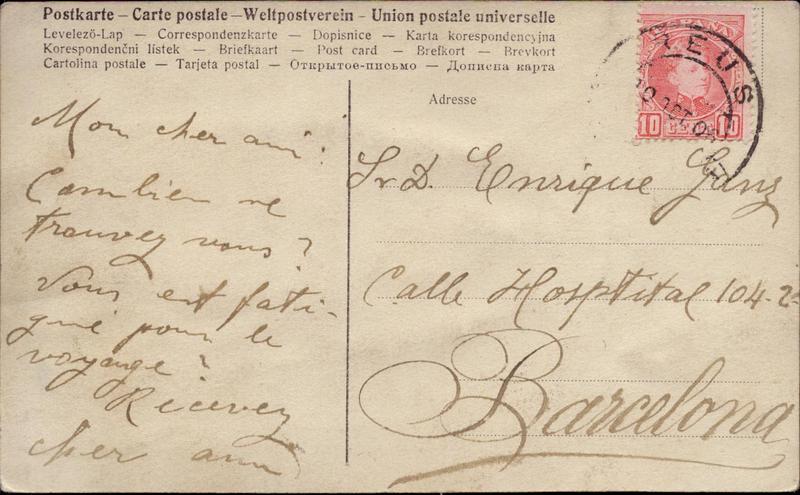 Postkarte – Carte postale – Weltpostverein – Union postale universelle
Levelezö-Lap — Correspondenzkarte — Dopisnice — Karta korespondencyjna
Korespondenčni lístek — Briefkaart — Post card — Brefkort — Brevkort
Cartolina postale — Tarjeta postal — Открытое-письмо — Дописна карта
REUS
10 10
Adresse
Mon cher ami:
Combien ne
trouvez vous?
Vous est fati-
gué pour le
voyage?
Recevez
cher ami
Sr D. Enrique
Calle Hosptital 104-2
Barcelona